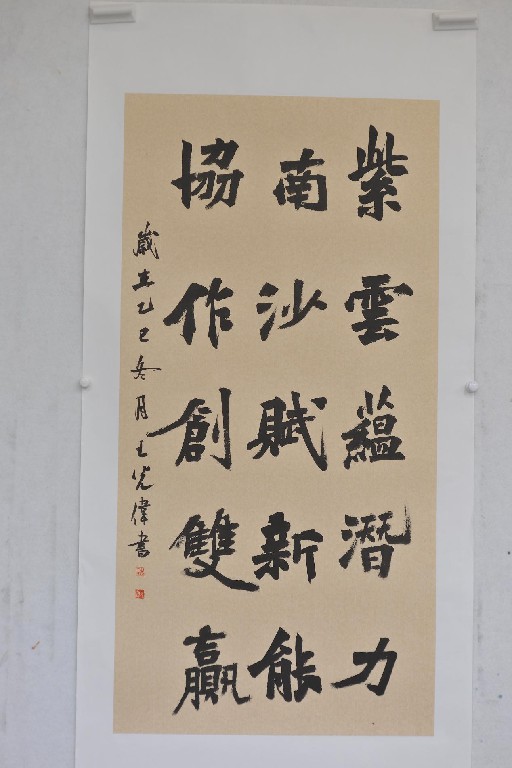 紫雲蘊潛力
南沙賦新能
協作創雙贏
歲在乙巳冬月王光偉書